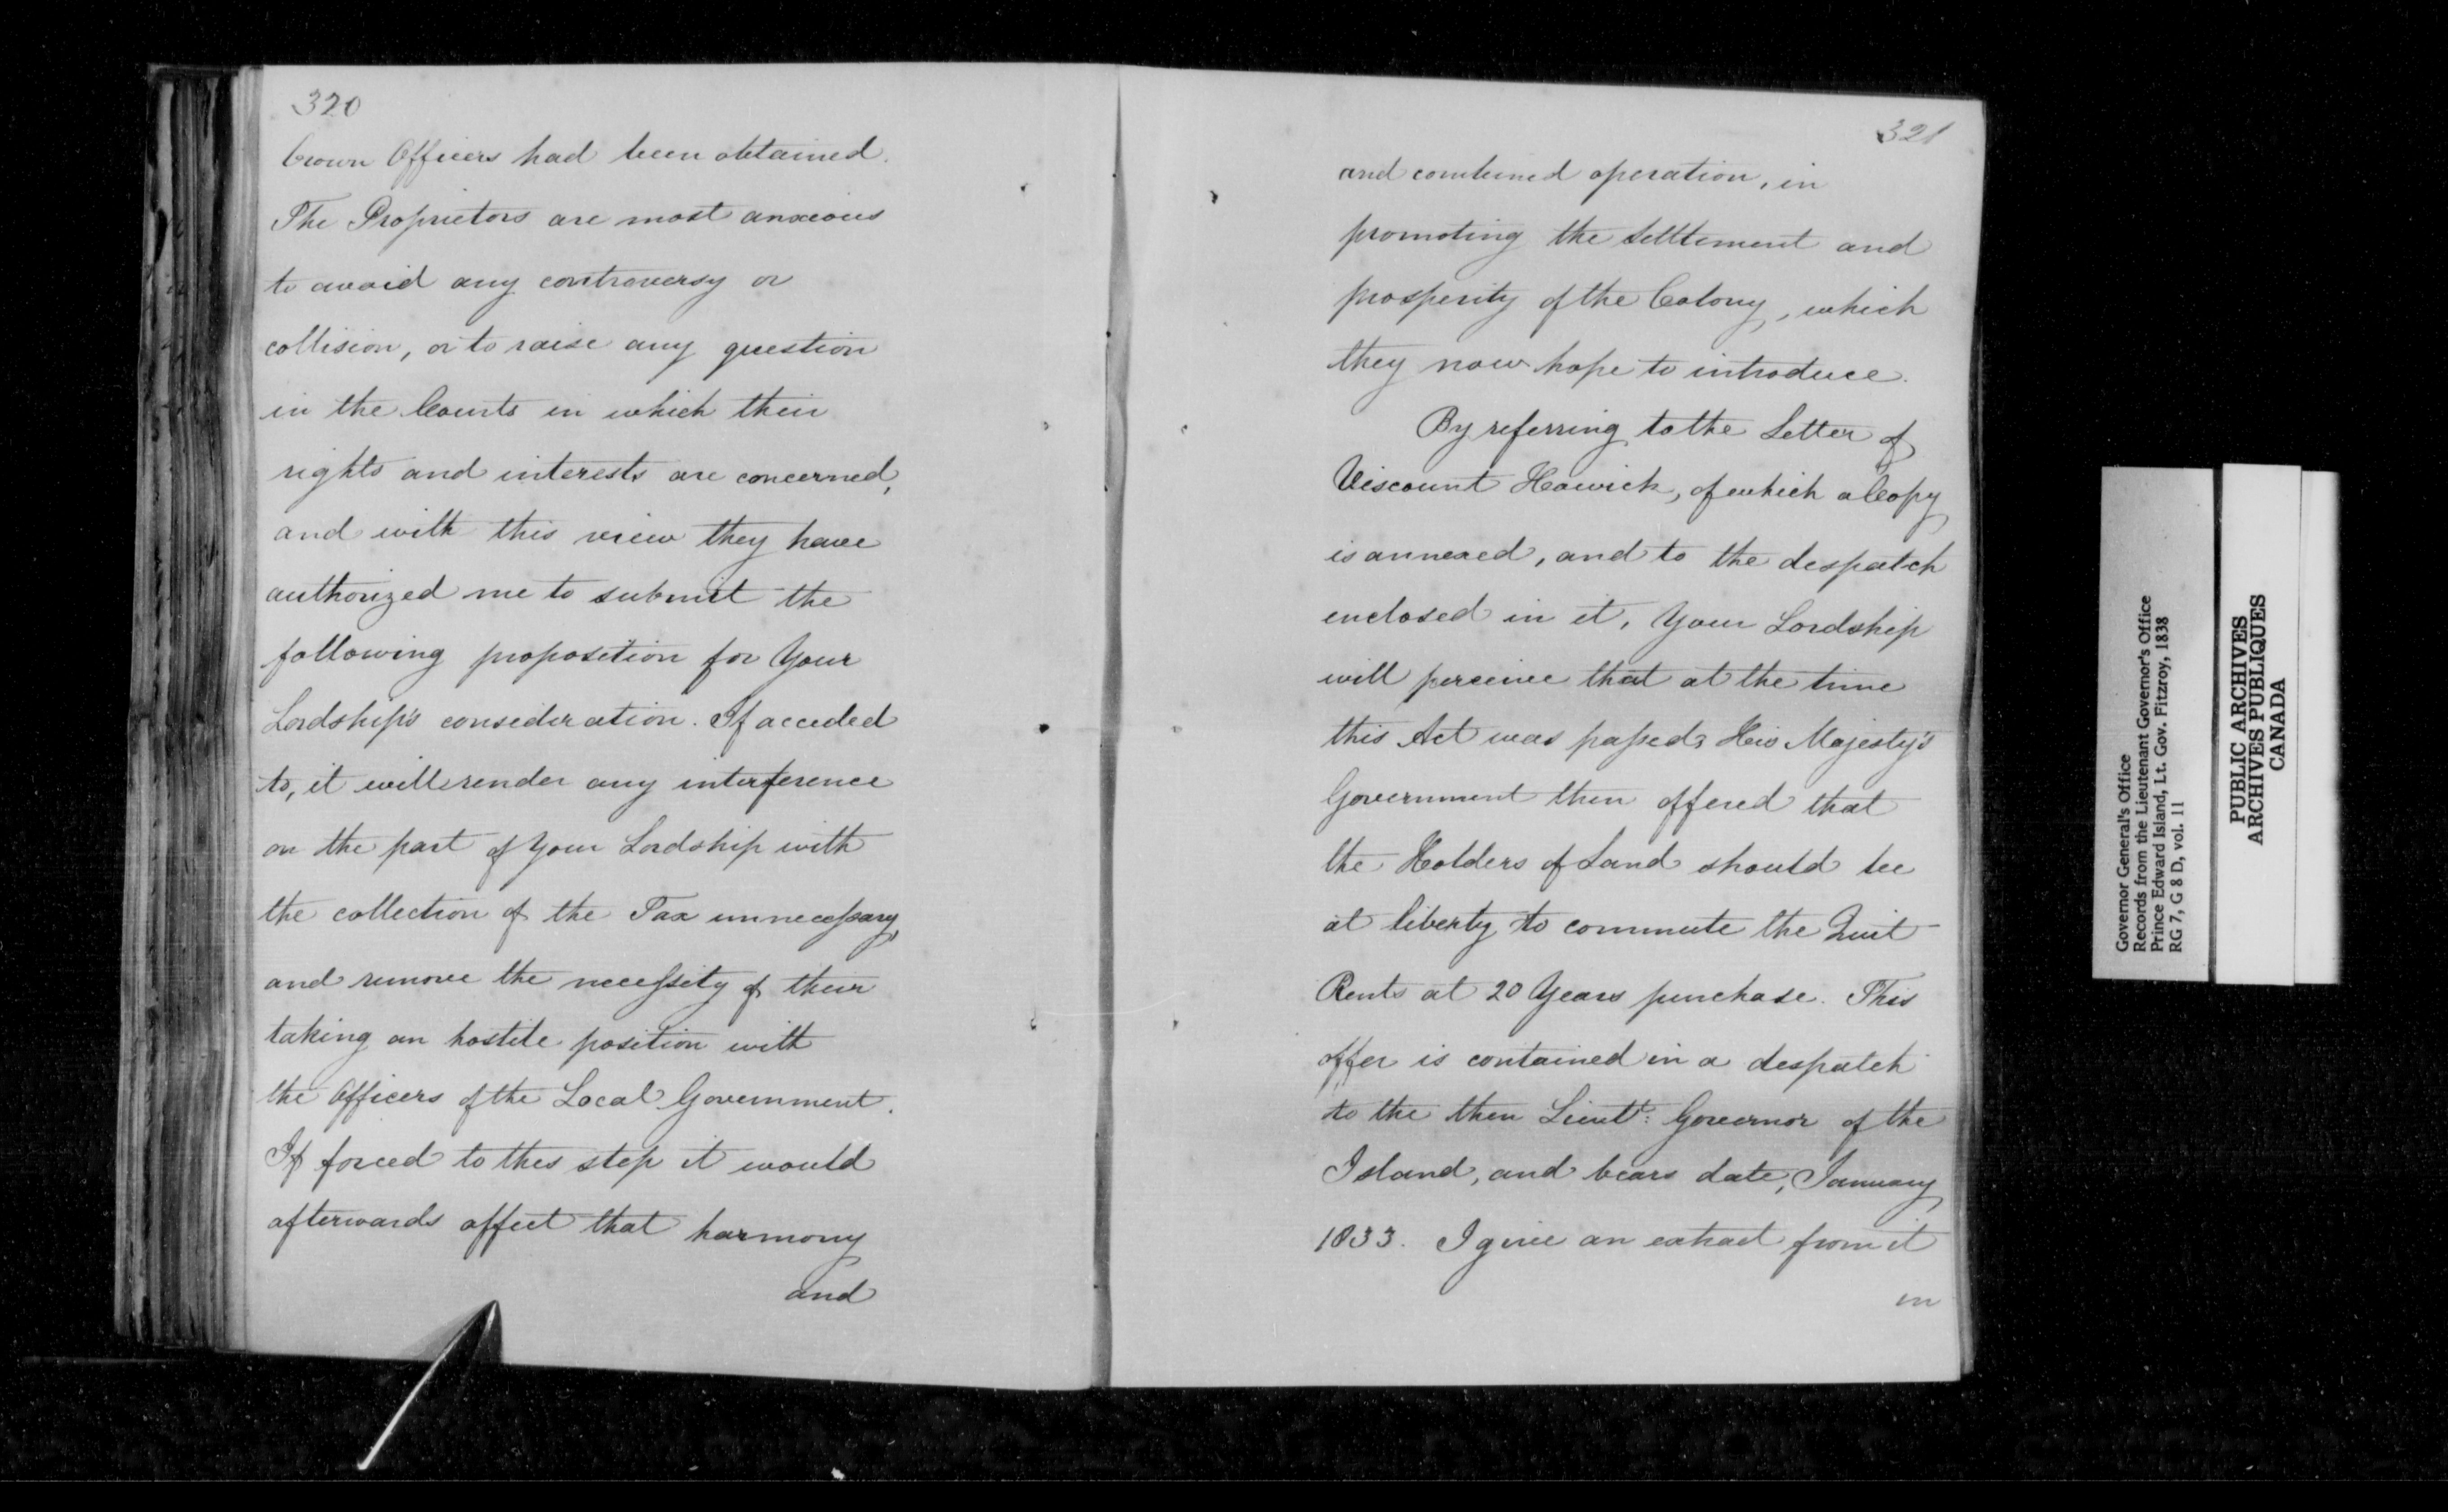 320
Crown Officers had been obtained.
The Proprietors are most anxious
to avoid any controversy or
collision, or to raise any question
in the Courts in which their
rights and interests are concerned,
and with this view they have
authorized me to submit the
following proposition for Your
Lordship's consideration. If acceded
to, it will render any interference
on the part of Your Lordship with
the collection of the Tax unnecessary,
and remove the necessity of their
taking an hostile position with
the Officers of the Local Government.
If forced to this step it would
afterwards affect that harmony
and
321
and combined operation, in
promoting the Settlement and
prosperity of the Colony, which
they now hope to introduce.
By referring to the Letter of
Viscount Howick, of which a Copy
is annexed, and to the despatch
enclosed in it, Your Lordship
will perceive that at the time
this Act was passed, His Majesty's
Government then offered that
the Holders of Land should be
at liberty to commute the Quit
Rents at 20 Years purchase. This
offer is contained in a despatch
to the then Lieutt: Governor of the
Island, and bears date, January
1833. I give an extract from it
in
Governor General's Office
Records from the Lieutenant Governor's Office
Prince Edward Island, Lt. Gov. Fitzroy, 1838
RG 7, G 8 D, vol. 11
PUBLIC ARCHIVES
ARCHIVES PUBLIQUES
CANADA